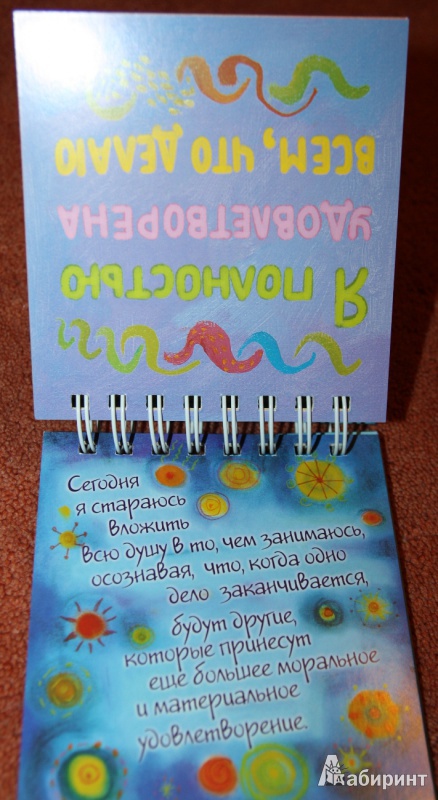 Я ПОЛНОСТЬЮ
УДОВЛЕТВОРЕНА
ВСЕМ, ЧТО ДЕЛАЮ
Сегодня
я стараюсь
вложить
всю душу в то, чем занимаюсь,
осознавая, что, когда одно
дело заканчивается,
будут другие,
которые принесут
еще большее моральное
и материальное
удовлетворение.
Лабиринт